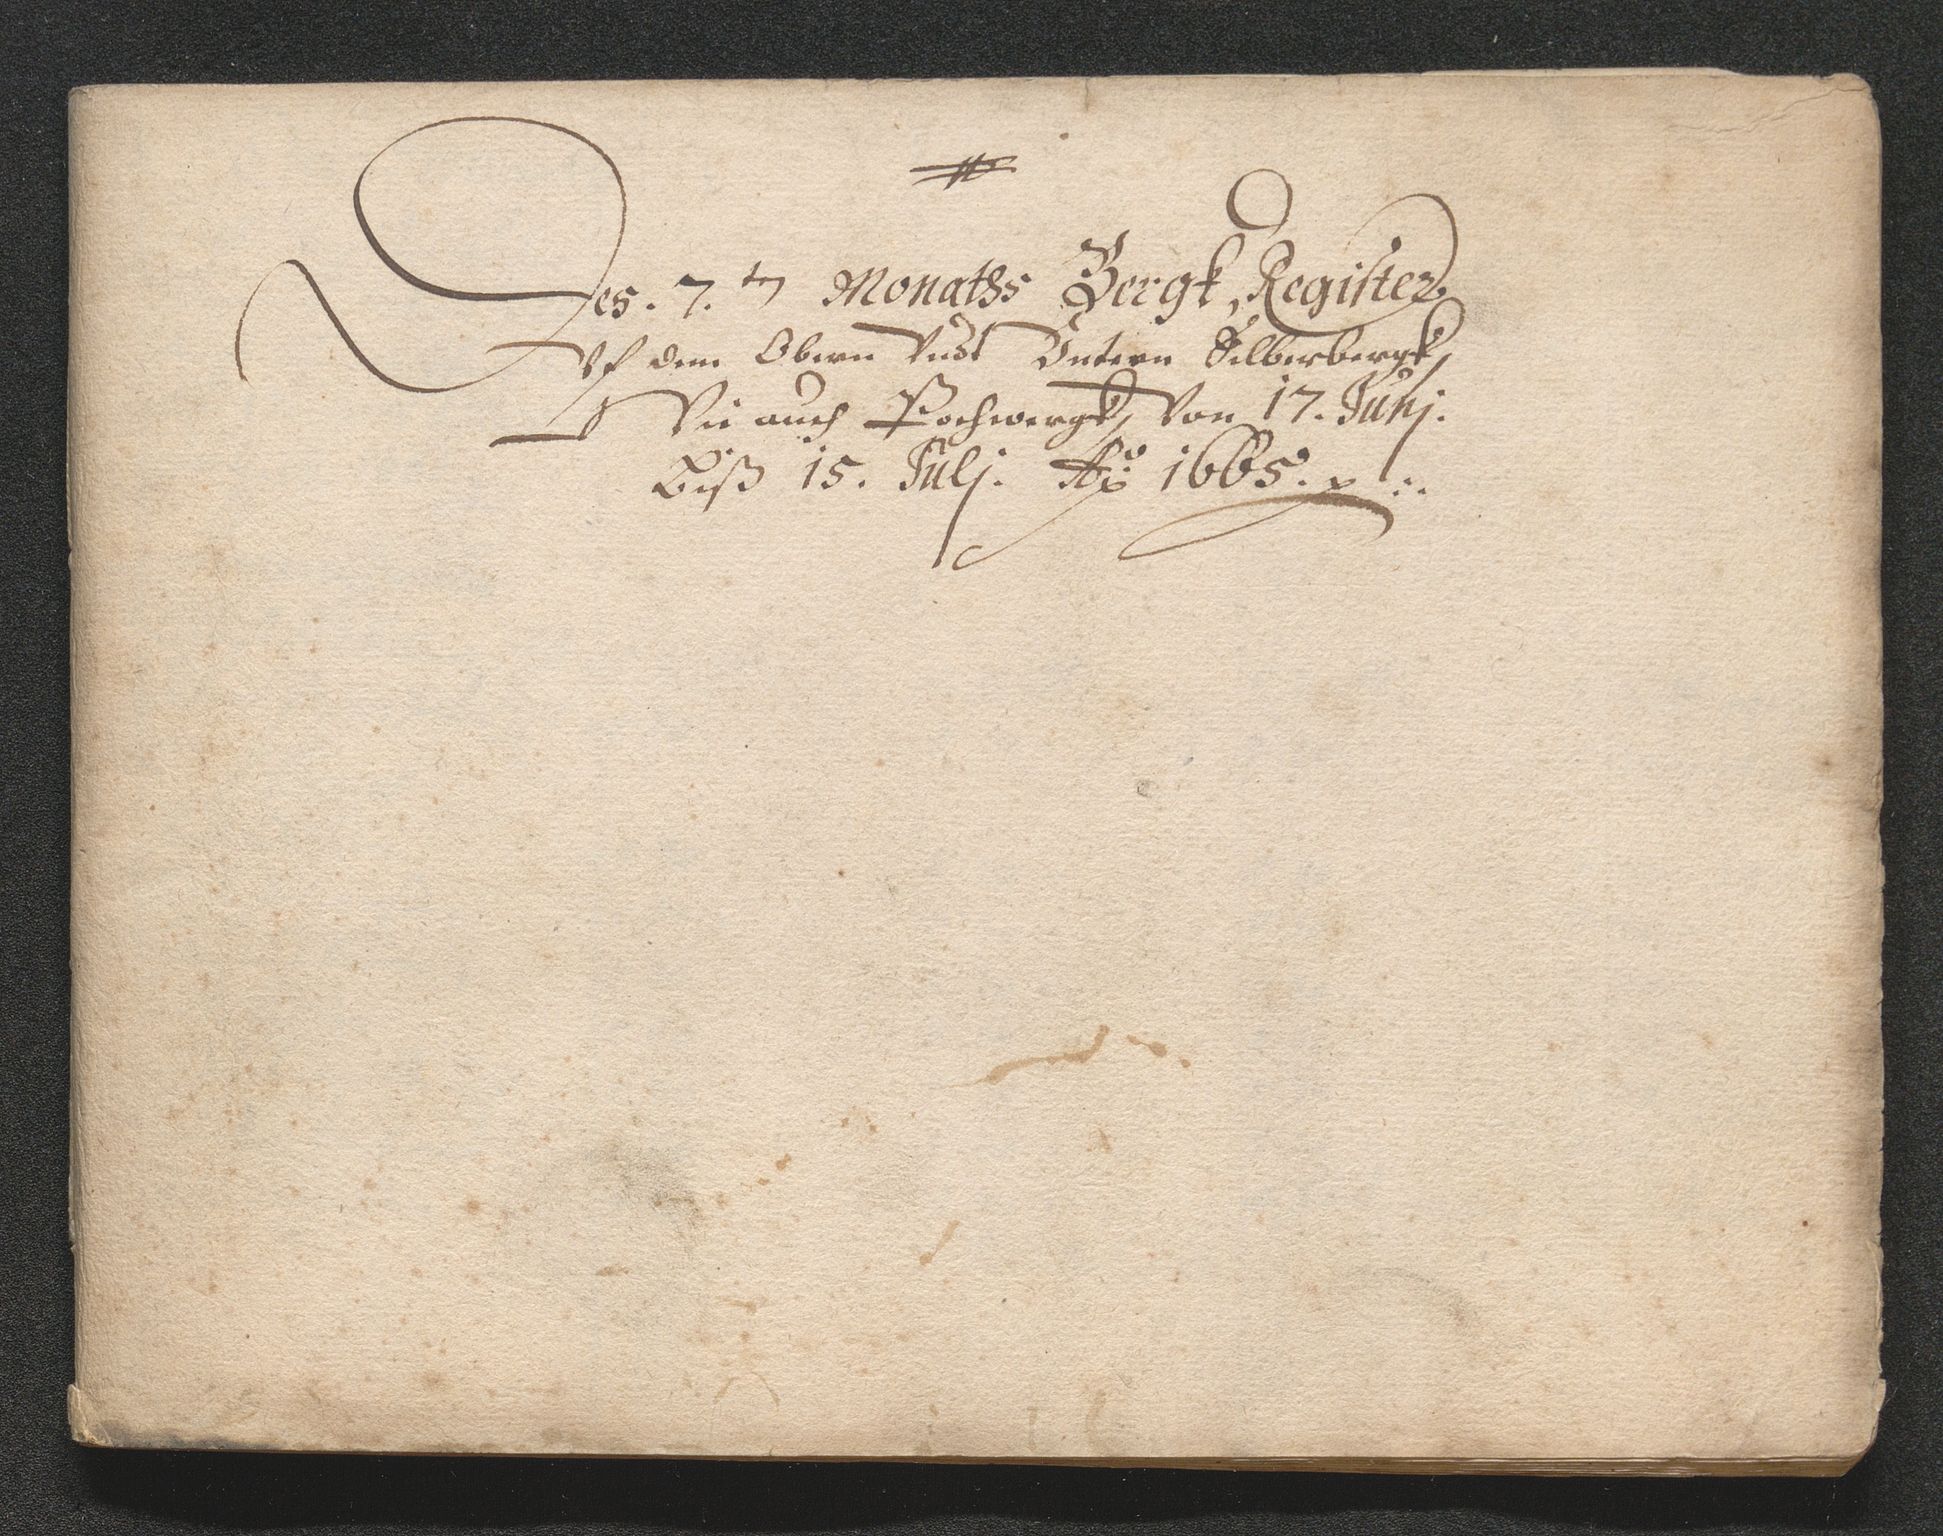 Des. 7. tn Monaths Bergk Register
Vf dem Obern Vndt Vntern Silberbergk,
Wie auch Pochwergk, Von 17. Junj.
Biß 15. Julj. Ao 1665.